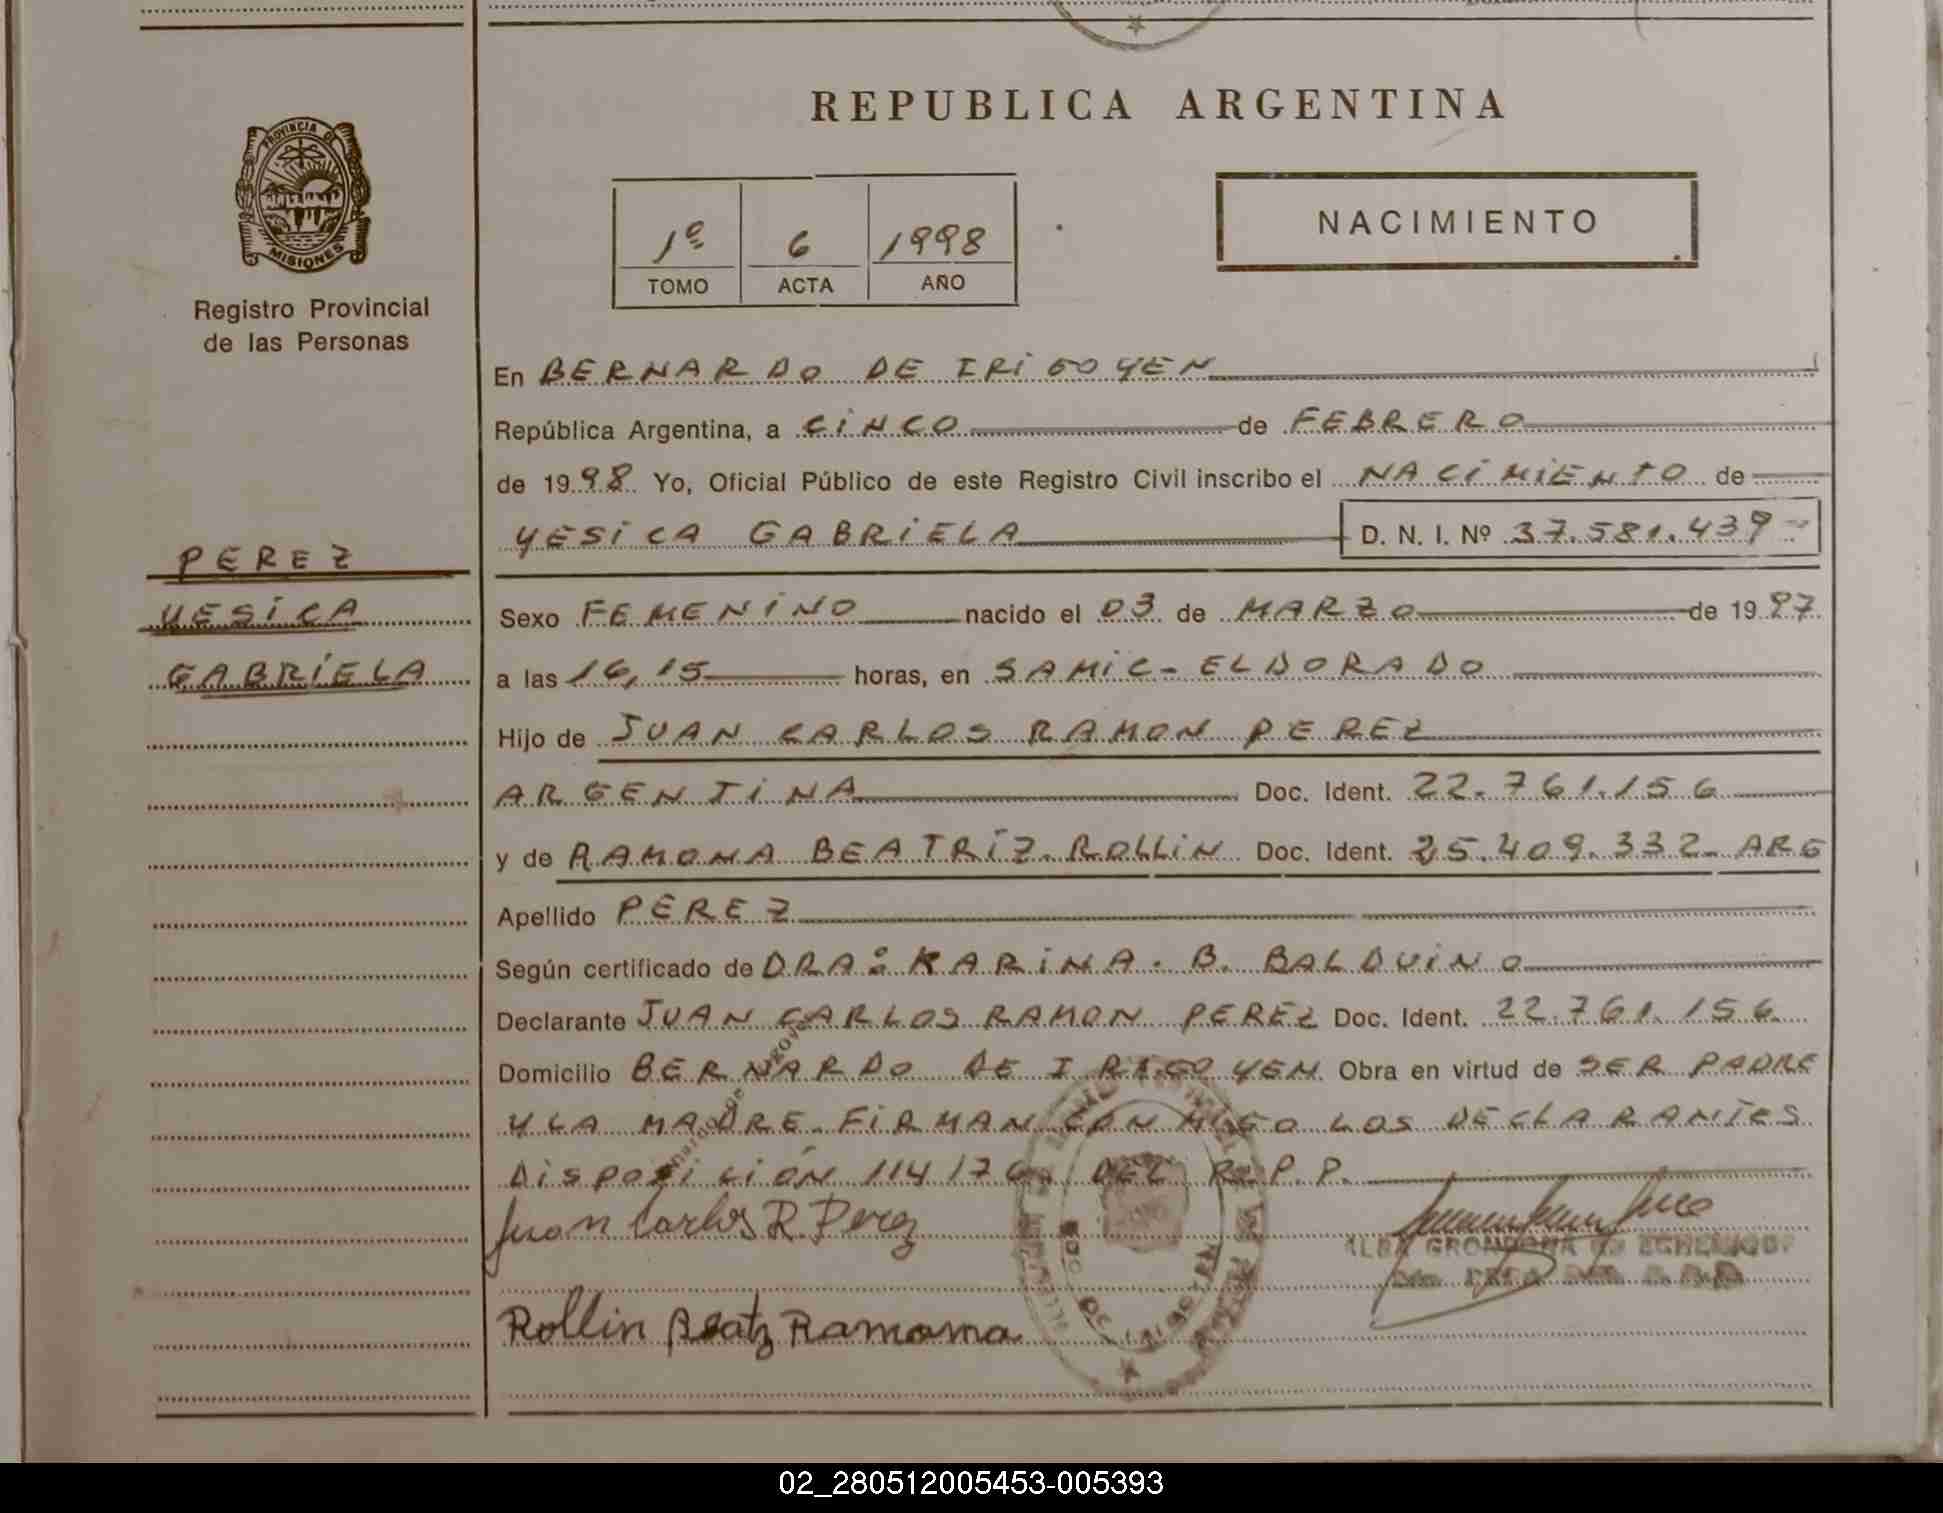 REPUBLICA ARGENTINA
PROVINCIA DE
MISIONES
Registro Provincial
de las Personas
1º 6 1998
TOMO ACTA AÑO
NACIMIENTO
En BERNARDO DE IRIGOYEN
República Argentina, a CINCO de FEBRERO
de 1998 Yo, Oficial Público de este Registro Civil inscribo el NACIMIENTO de
YESICA GABRIELA D. N. I. Nº 37.581.439
PEREZ
YESICA
GABRIELA
Sexo FEMENINO nacido el 03 de MARZO de 1997
a las 16,15 horas, en SAMIC - ELDORADO
Hijo de JUAN CARLOS RAMON PEREZ
ARGENTINA Doc. Ident. 22.761.156
y de RAMONA BEATRIZ ROLLIN Doc. Ident. 25.409.332 - ARG
Apellido PEREZ
Según certificado de DRA: KARINA. B. BALDUINO
Declarante JUAN CARLOS RAMON PEREZ Doc. Ident. 22.761.156
Domicilio BERNARDO DE IRIGOYEN Obra en virtud de SER PADRE
Y LA MADRE FIRMAN CONMIGO LOS DECLARANTES
DISPOSICIÓN 114/76 DEL R.P.P.
Juan Carlos R. Perez
Rollin Beatz Ramona
02_280512005453-005393